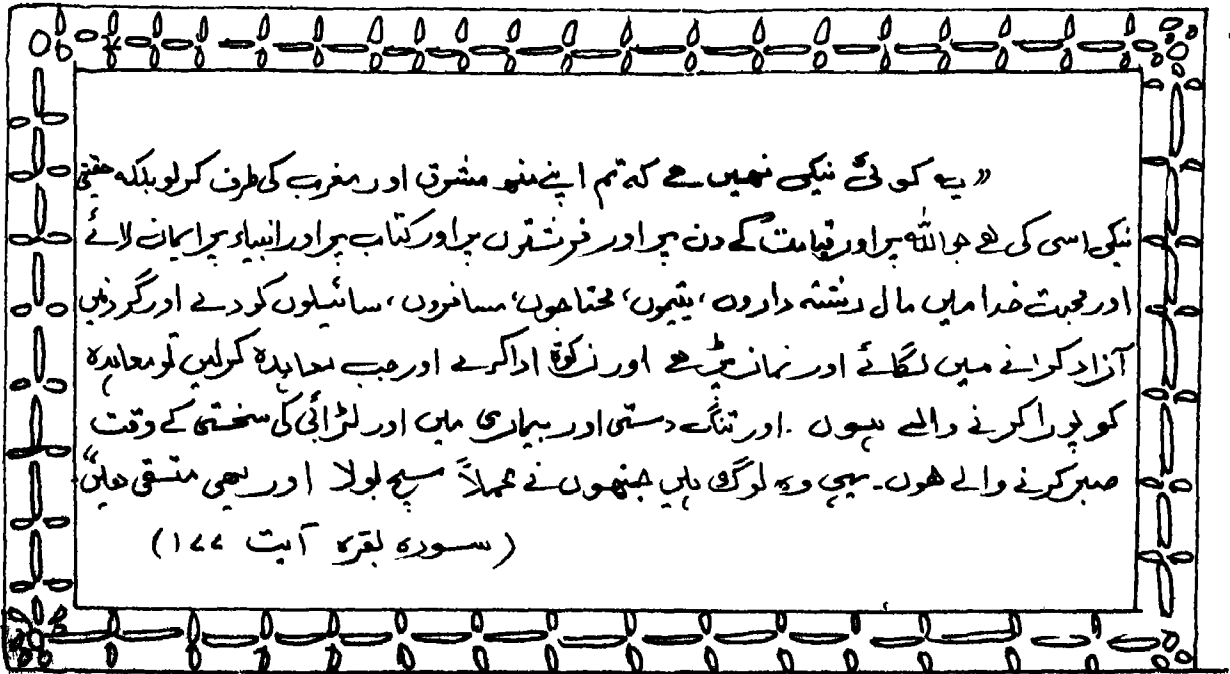 ”یہ کوئی نیکی نہیں ہے کہ تم اپنے منھ مشرق اور مغرب کی طرف کرلو بلکہ حقیقی
نیکی اسی کی ہے جو اللہ پر اور قیامت کے دن پر اور فرشتوں پر اور کتاب پر اور انبیاء پر ایمان لائے
اور محبت خدا میں مال رشتہ داروں، یتیموں، محتاجوں، مسافروں، سائیلوں کو دے اور گردنیں
آزاد کرانے میں لگائے اور نماز پڑھے اور زکوٰۃ ادا کرے اور جب معاہدہ کرلیں تو معاہدہ
کو پورا کرنے والے ہوں۔ اور تنگ دستی اور بیماری میں اور لڑائی کی سختی کے وقت
صبر کرنے والے ہوں۔ یہی وہ لوگ ہیں جنھوں نے عملاً سچ بولا اور یہی متقی ہیں“
(سورہ بقرہ آیت ۱۷۷)